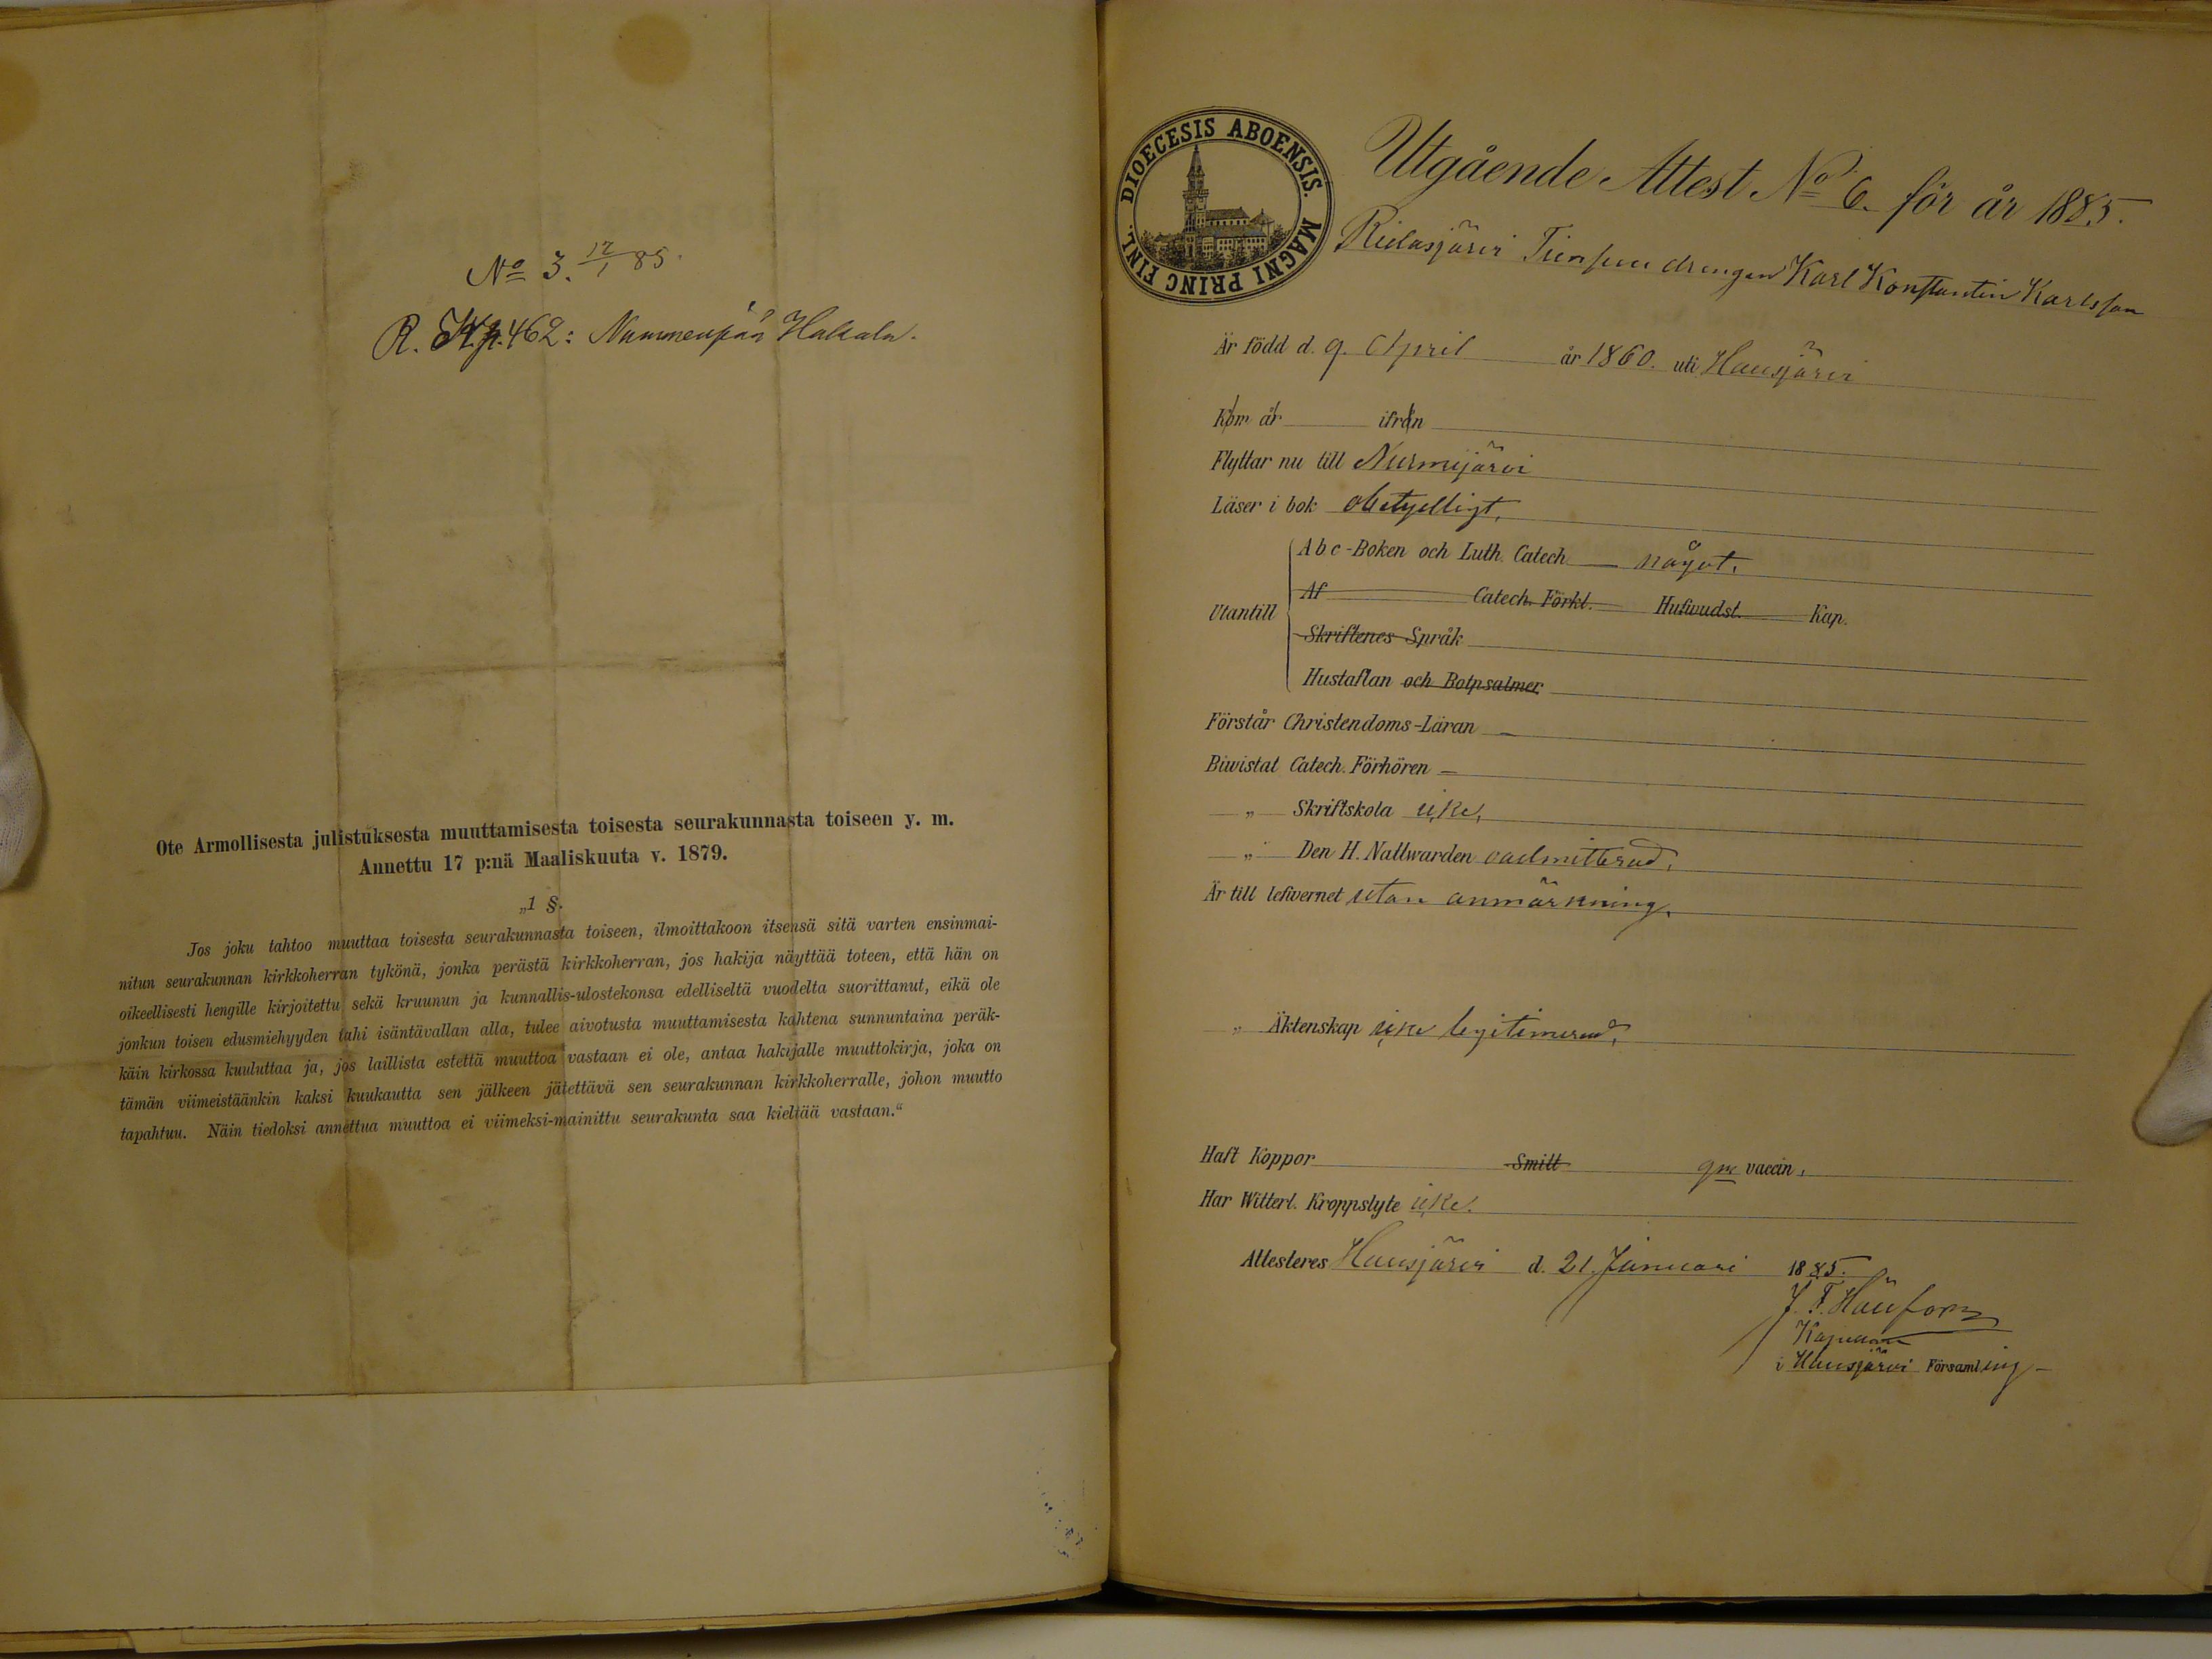 No 3. 12/1 85.
R. K. p. 462: Nummenpää Hakkala.
Ote Armollisesta julistuksesta muuttamisesta toisesta seurakunnasta toiseen y. m.
Annettu 17 p:nä Maaliskuuta v. 1879.
„1 §.
Jos joku tahtoo muuttaa toisesta seurakunnasta toiseen, ilmoittakoon itsensä sitä varten ensinmai-
nitun seurakunnan kirkkoherran tykönä, jonka perästä kirkkoherran, jos hakija näyttää toteen, että hän on
oikeellisesti hengille kirjoitettu sekä kruunun ja kunnallis-ulostekonsa edelliseltä vuodelta suorittanut, eikä ole
jonkun toisen edusmiehyyden tahi isäntävallan alla, tulee aivotusta muuttamisesta kahtena sunnuntaina peräk-
käin kirkossa kuuluttaa ja, jos laillista estettä muuttoa vastaan ei ole, antaa hakijalle muuttokirja, joka on
tämän viimeistäänkin kaksi kuukautta sen jälkeen jätettävä sen seurakunnan kirkkoherralle, johon muutto
tapahtuu. Näin tiedoksi annettua muuttoa ei viimeksi-mainittu seurakunta saa kieltää vastaan.“
DIOECESIS ABOENSIS. MAGNI PRINC FINL.
Utgående Attest No 6. för år 1885.
drengen Karl Konstantin Karlsson
Är född d. 9. April år 1860. uti Hausjärvi
Kom år ifrån
Flyttar nu till Nurmijärvi
Läser i bok obetydligt.
Abc-Boken och Luth. Catech något.
Utantill
Af Catech. Förkl. Hufwudst. Kap.
Skriftenes Språk
Hustaflan och Botpsalmer
Förstår Christendoms-Läran —
Biwistat Catech. Förhören —
„ Skriftskola icke.
„ Den H. Nattwarden oadmitterad.
Är till lefwernet utan anmärkning.
„ Äktenskap icke legitimerad.
Haft Koppor Smitt gm vaccin.
Har Witterl. Kroppslyte icke.
Attesteres Hausjärvi d. 21. Januari 1885.
i Hausjärvi Församling